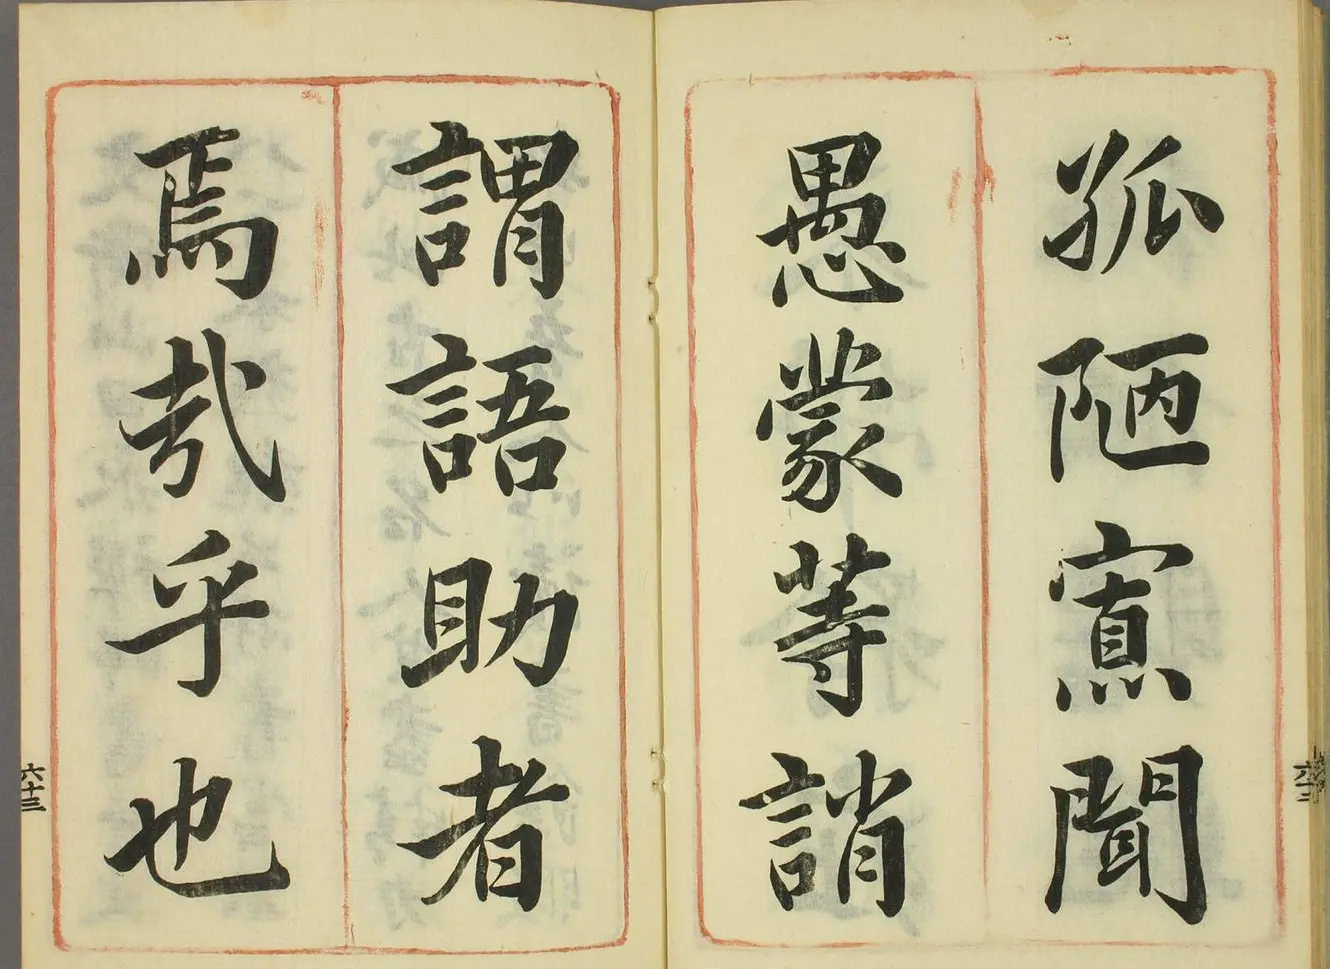 孤陋寡聞
愚蒙等誚
謂語助者
焉哉乎也
六十三